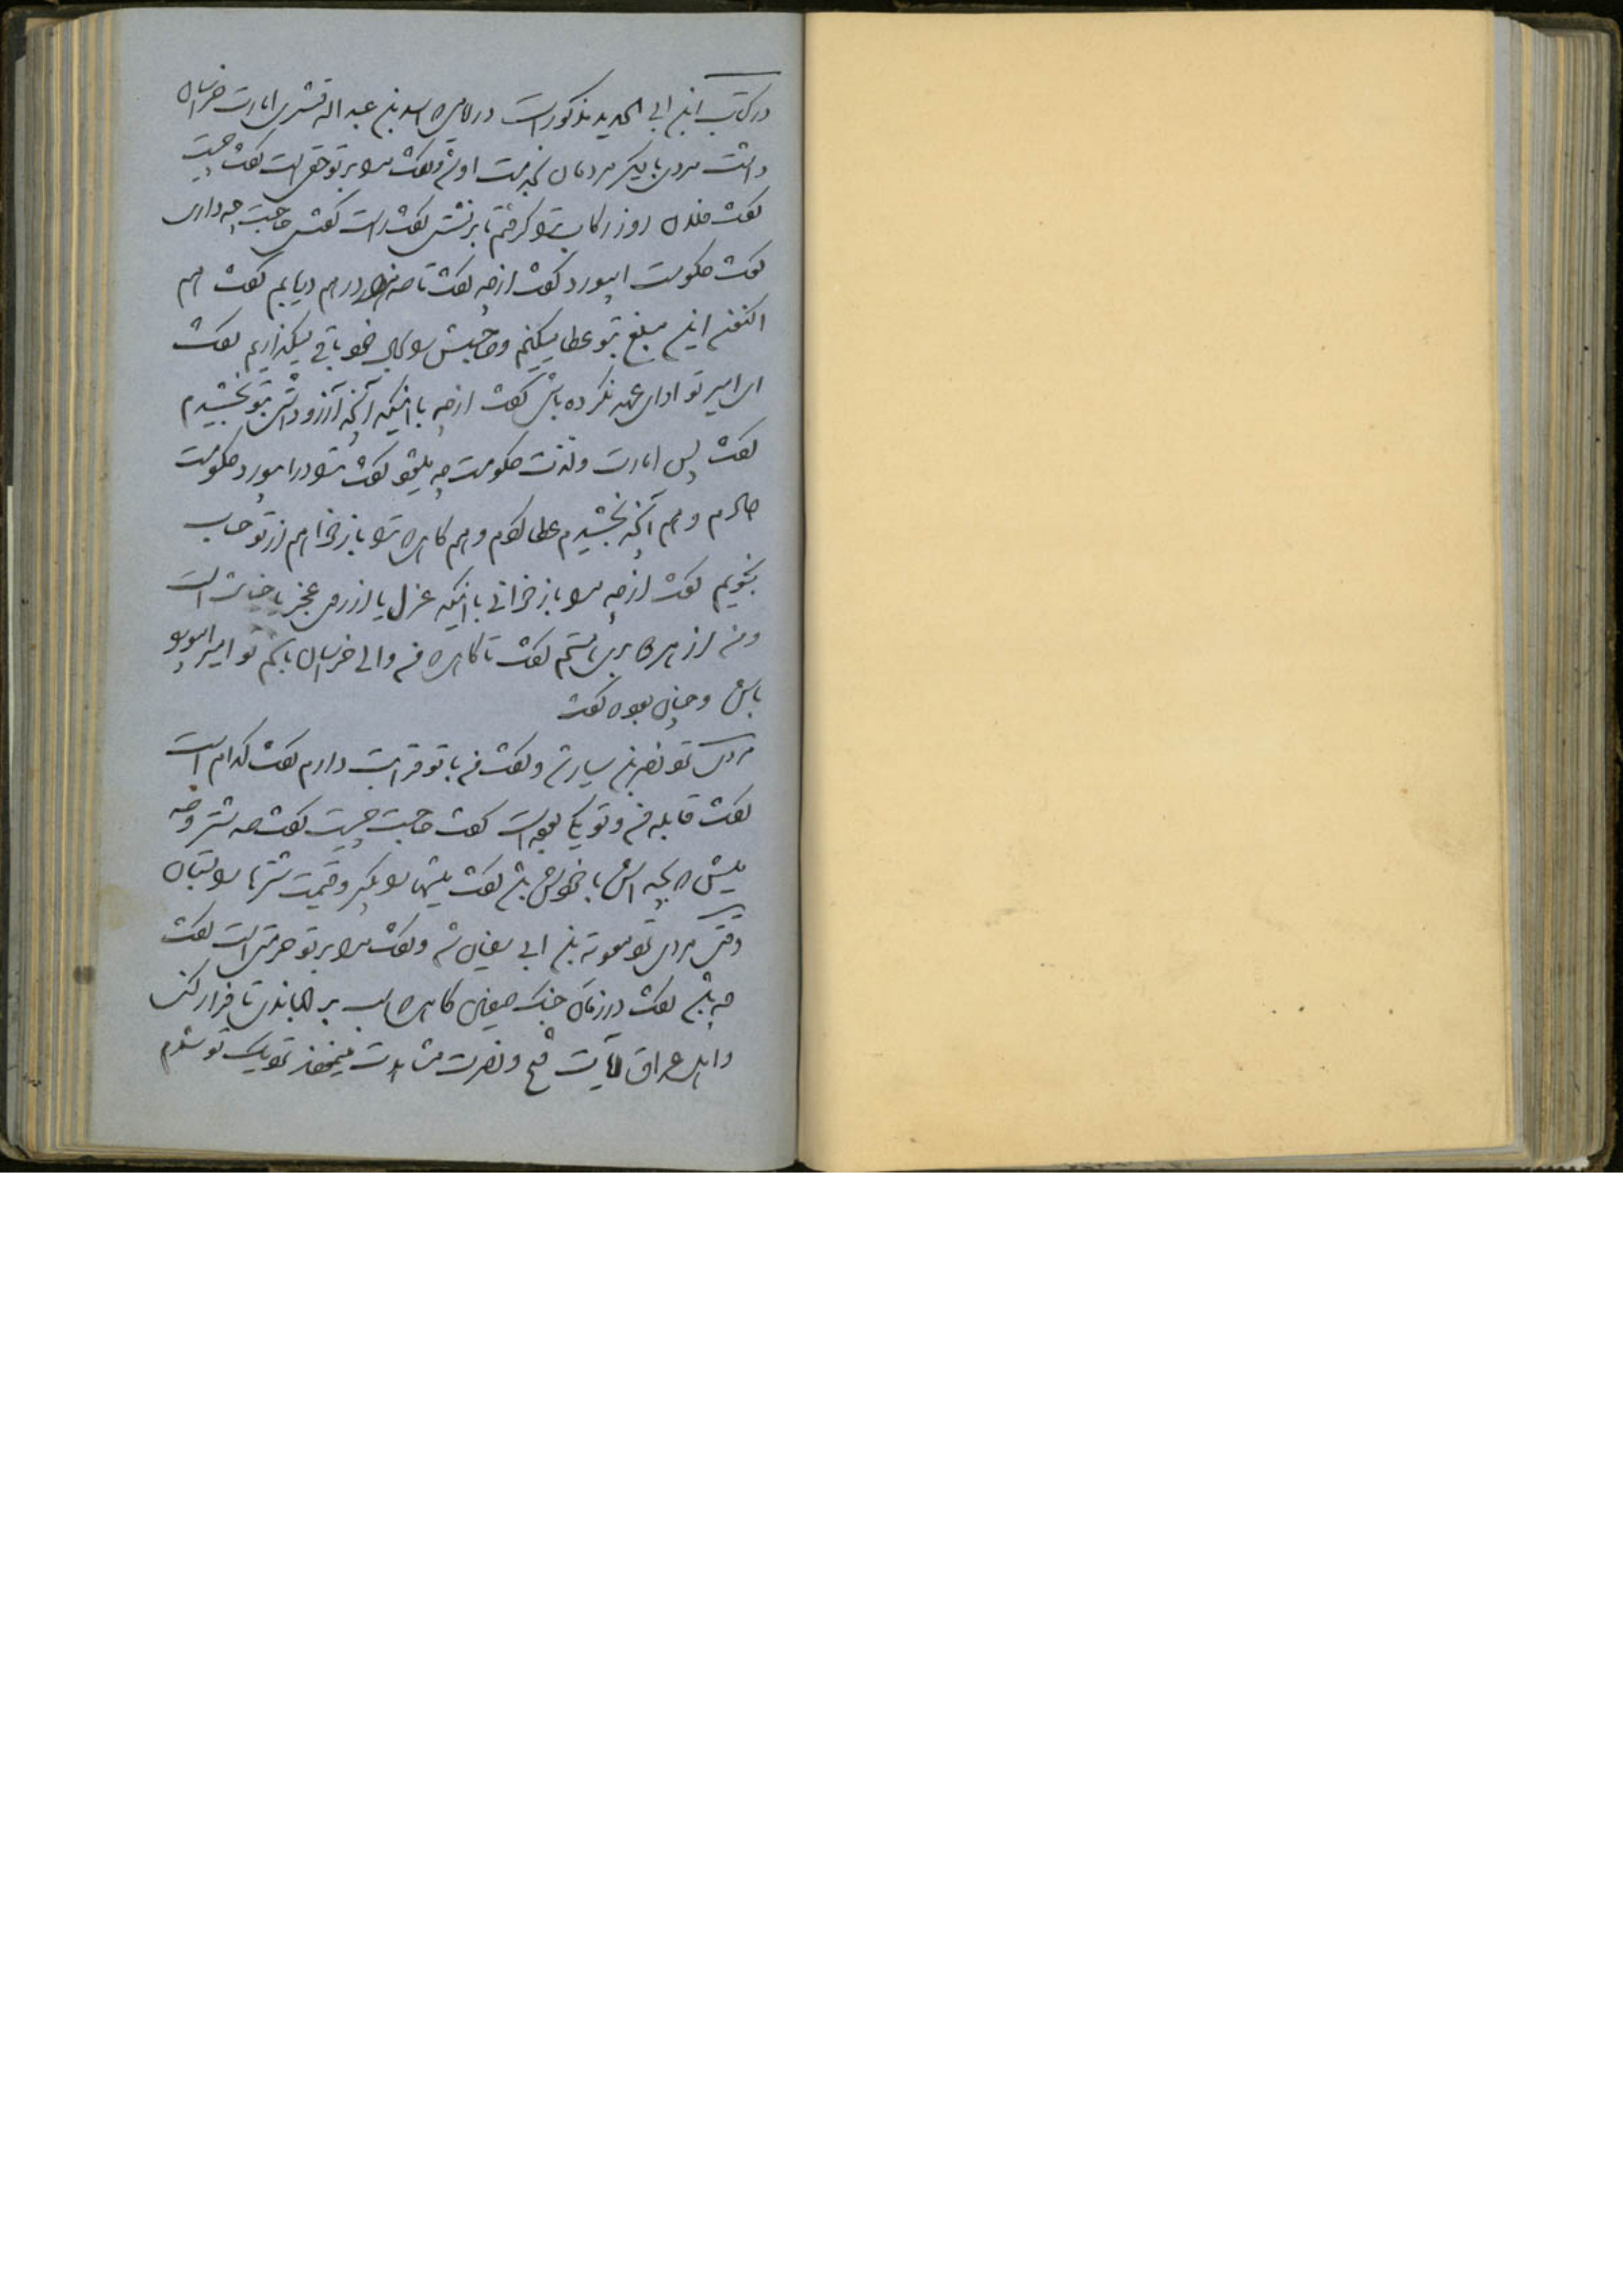 در کتاب ابن ابی الحدید مذکور است در هنگامیکه اسد بن عبد اله قسری امارت خراسان
داشت مردی با دیگر مردمان بخدمت او شد و گفت مرا بر تو حقی است گفت چیست
گفت فلان روز رکاب ترا گرفتم تا برنشستی گفت راست گفتی حاجت چه داری
گفت حکومت ابیورد گفت از چه گفت تا صد هزار درهم دریابم گفت هم
اکنون این مبلغ بتو عطا میکنیم و صاحبش را بحال خود باقی میگذاریم گفت
ای امیر تو ادای عهد نکرده باشی گفت از چه با اینکه آنچه آرزو داشتی بتو بخشیدم
گفت پس امارت و لذت حکومت چه میشود گفت ترا در ابیورد حکومت
دادم و هم آنچه بخشیدم عطا کردم و هم گاهی که ترا باز خواهم از تو حساب
نجویم گفت از چه مرا باز خوانی با اینکه عزل یا از روی عجز یا خیانت است
و من از هر دو بری هستم گفت تا گاهی که من والی خراسان باشم تو امیر ابیورد
باش و چنان بود که گفت
مردی نزد نصر بن سیار شد و گفت من با تو قرابت دارم گفت کدام است
گفت قابله من و تو یکی بوده است گفت حاجت چیست گفت صد شتر و صد
میش که بچه اش با خودش باشد گفت میشها را بگیر و قیمت شترها را بستان
وقتی مردی نزد معویه بن ابی سفیان شد و گفت مرا بر تو حرمتی است گفت
چه باشد گفت در زمان جنگ صفین گاهی که اسب بر جهاندی تا فرار کنی
و اهل عراق آیات فتح و نصرت مشاهدت مینمودند نزدیک تو شدم